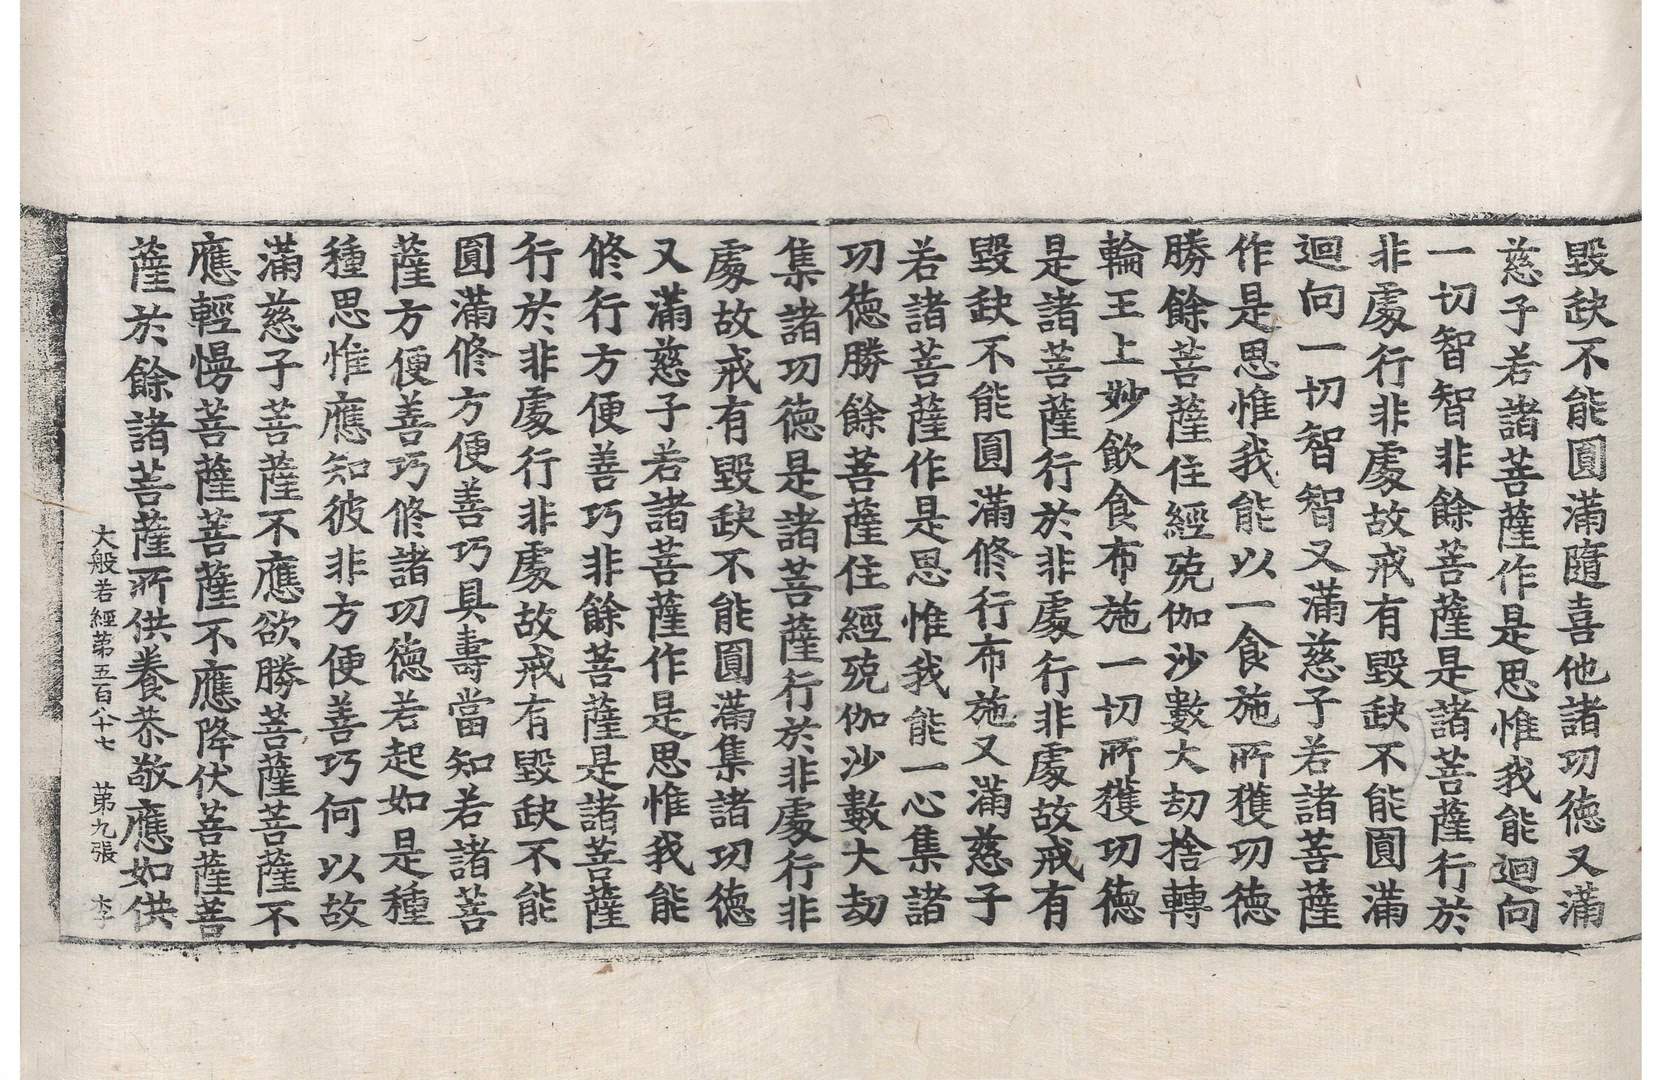 毀缺不能圓滿隨喜他諸功德又滿
慈子若諸菩薩作是思惟我能迴向
一切智智非餘菩薩是諸菩薩行於
非處行非處故戒有毀缺不能圓滿
迴向一切智智又滿慈子若諸菩薩
作是思惟我能以一食施所獲功德
勝餘菩薩住經殑伽沙數大劫捨轉
輪王上妙飲食布施一切所獲功德
是諸菩薩行於非處行非處故戒有
毀缺不能圓滿修行布施又滿慈子
若諸菩薩作是思惟我能一心集諸
功德勝餘菩薩住經殑伽沙數大劫
集諸功德是諸菩薩行於非處行非
處故戒有毀缺不能圓滿集諸功德
又滿慈子若諸菩薩作是思惟我能
修行方便善巧非餘菩薩是諸菩薩
行於非處行非處故戒有毀缺不能
圓滿修方便善巧具壽當知若諸菩
薩方便善巧修諸功德若起如是種
種思惟應知彼非方便善巧何以故
滿慈子菩薩不應欲勝菩薩菩薩不
應輕慢菩薩菩薩不應降伏菩薩菩
薩於餘諸菩薩所供養恭敬應如供
大般若經第五百八十七 第九張 李